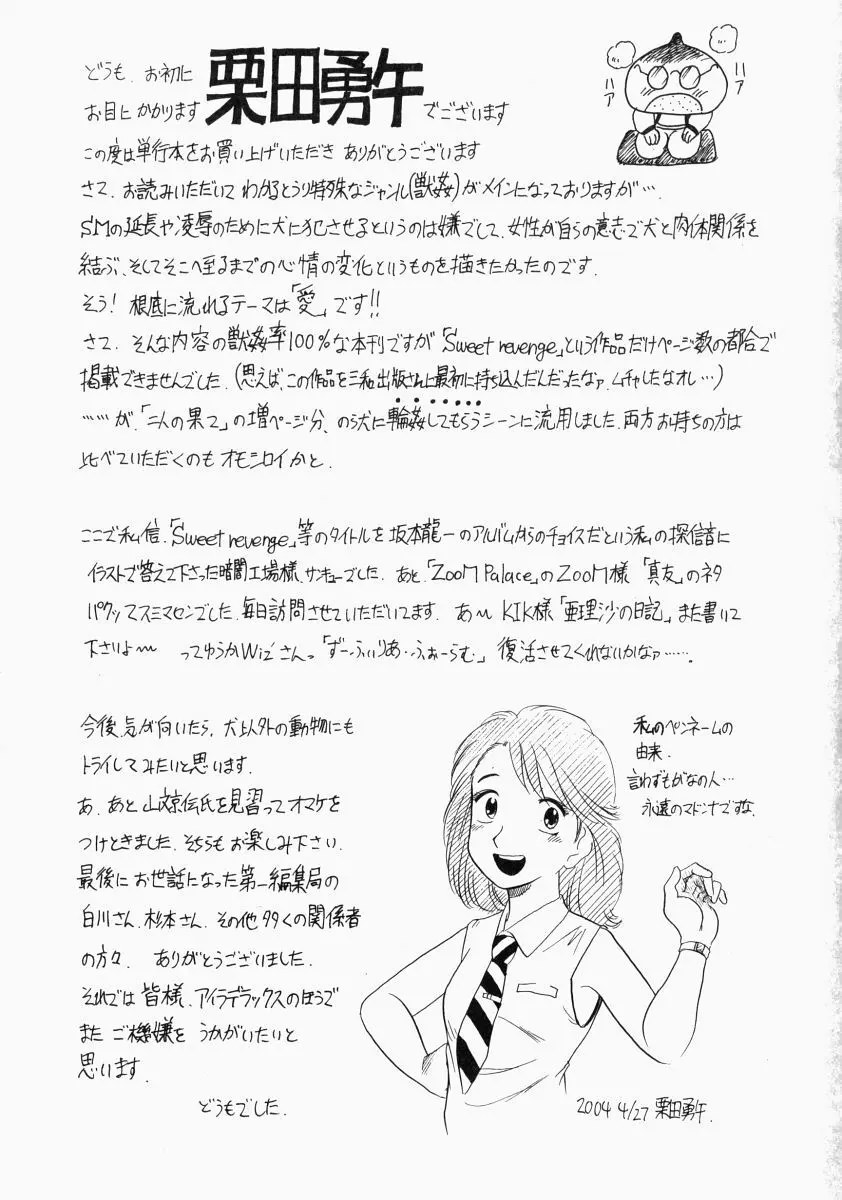 どうも、お初に
お目にかかります 栗田勇午 でございます
ハア
ハア
この度は単行本をお買い上げいただき ありがとうございます
さて、お読みいただいて わかるとうり特殊なジャンル(獣姦)がメインになっておりますが…、
SMの延長や凌辱のために犬に犯させるというのは嫌でして、女性が自らの意志で犬と肉体関係を
結ぶ、そしてそこへ至るまでの心情の変化というものを描きたかったのです.
そう! 根底に流れるテーマは「愛」です!!
さて、そんな内容の獣姦率100%な本刊ですが「Sweet revenge」という作品だけページ数の都合で
掲載できませんでした.(思えば、この作品を三和出版さんに最初に持ち込んだんだったなァ.ムチャしたなオレ…)
……が、「二人の果て」の増ページ分、のら犬に輪姦してもらうシーンに流用しました.両方お持ちの方は
比べていただくのも オモシロイかと.
ここで私信.「Sweet revenge」等のタイトルを坂本龍一のアルバムからのチョイスだという私の探信音に
イラストで答えて下さった暗闇工場様、サンキューでした. あと「ZooM Palace」のZooM様 「真友」のネタ
パクッてスミマセンでした.毎日訪問させていただいてます. あ〜 KIK様「亜理沙の日記」また書いて
下さいよ〜 ってゆうかWiz'さんっ「ずーふぃりあ・ふぉーらむ」 復活させてくれないかなァ…….
今後、気が向いたら、犬以外の動物にも
トライしてみたいと思います.
あ、あと 山文京伝氏を見習って オマケを
つけときました. そちらも お楽しみ下さい.
最後に お世話になった 第一編集局の
白川さん、杉本さん、その他 多くの関係者
の方々、 ありがとうございました.
それでは 皆様、アイラデラックスのほうで
また ご機嫌を うかがいたいと
思います.
どうもでした.
私のペンネームの
由来.
言わずもがなの人…
永遠のマドンナですな.
2004 4/27 栗田勇午.